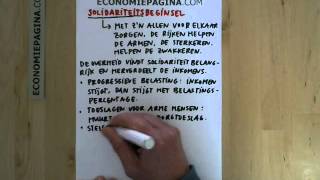 ECONOMIEPAGINA.COM
ECONOMIEPAGINA.COM
SOLIDARITEITSBEGINSEL
MET Z'N ALLEN VOOR ELKAAR
ZORGEN. DE RIJKEN HELPEN
DE ARMEN, DE STERKEREN
HELPEN DE ZWAKKEREN.
DE OVERHEID VINDT SOLIDARITEIT BELANG-
RIJK EN HERVERDEELT DE INKOMENS.
• PROGRESSIEVE BELASTING: INKOMEN
STIJGT, DAN STIJGT HET BELASTINGS-
PERCENTAGE.
• TOESLAGEN VOOR ARME MENSEN:
HUURT ZORGTOESLAG.